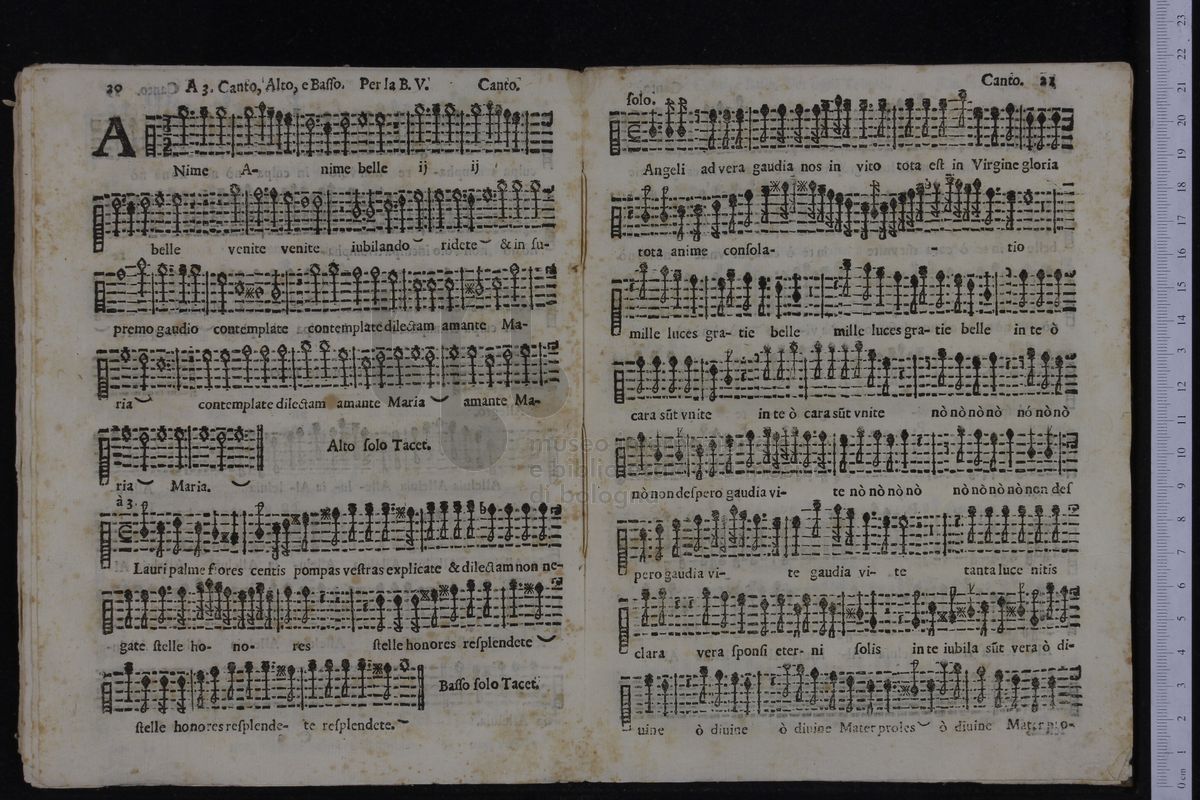 20 A 3. Canto, Alto, e Basso. Per la B. V. Canto.
A Nime A- nime belle ij ij
belle venite venite iubilando ridete & in su-
premo gaudio contemplate contemplate dilectam amante Ma-
ria contemplate dilectam amante Maria amante Ma-
ria Maria.
Alto solo Tacet.
à 3.
Lauri palme flores centis pompas vestras explicate & dilectam non ne-
gate stelle ho- no- res stelle honores resplendete
stelle honores resplende- te resplendete.
Basso solo Tacet.
Canto. 21
solo.
Angeli ad vera gaudia nos in vito tota est in Virgine gloria
tota anime consola- tio
mille luces gra- tie belle mille luces gra- tie belle in te ò
cara sūt vnite in te ò cara sūt vnite nò nò nò nò nó nò nò
nò non despero gaudia vi- te nò nò nò nò nò nò nò nò non des
pero gaudia vi- te gaudia vi- te tanta luce nitis
clara vera sponsi eter- ni solis in te iubila sūt vera ò di-
uine ò diuine ò diuine Mater proles ò diuine Mater pro-
museo
e biblio
di bologna